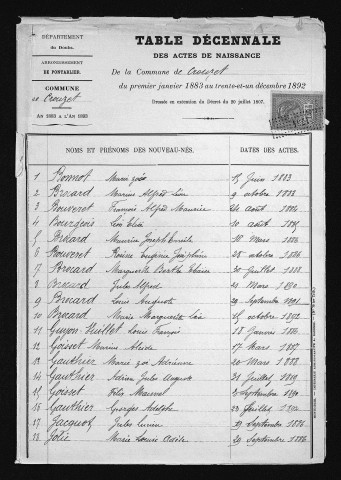 DÉPARTEMENT
du Doubs.
ARRONDISSEMENT
DE PONTARLIER
COMMUNE
de Crouzet
AN 1883 A L'AN 1892
TABLE DÉCENNALE
DES ACTES DE NAISSANCE
De la Commune de Crouzet
du premier janvier 1883 au trente-et-un décembre 1892
Dressée en exécution du Décret du 20 juillet 1807.
NOMS ET PRÉNOMS DES NOUVEAU-NÉS. DATES DES ACTES.
1 Bonnot Marie Juin 1883
2 Brocard Marius Alfred 9 octobre 1883
3 Bouveret François Alfred Maurice 24 Août 1884
4 Bourgeois 10 Août
5 Brocard Maurice Joseph Emile 18 Mars 1886
6 Bouveret Eugénie Joséphine 28 octobre 1886
7 Brocard Marguerite Berthe 30 Juillet 1888
8 Brocard Jules Alfred 23 Mars 1890
9 Brocard Louis Auguste 29 Septembre 1891
10 Brocard Marie Marguerite 15 octobre 1892
11 Guyon-Vuillet Louis François 18 Janvier 1884
12 Goiset Marius 17 Mars 1887
13 Gauthier Marie Adrienne 20 Mars 1888
14 Gauthier Adrien Jules August 21 Juillet 1889
15 Goiset Félix Marcel 2 Septembre 1890
16 Gauthier Georges Adolphe 23 Juillet 1892
17 Jacquot Jules 29 Septembre 1884
18 Jolie Marie Louise Adèle 29 Septembre 1886